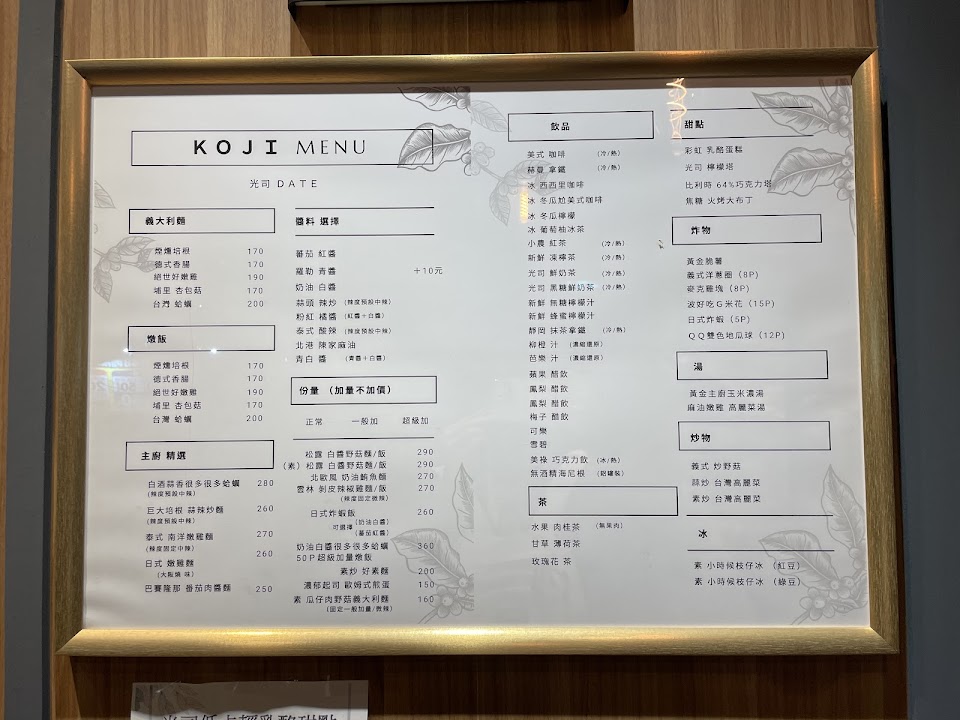 KOJI MENU
光司 DATE
義大利麵
煙燻培根 170
德式香腸 170
絕世好嫩雞 190
埔里 杏包菇 170
台灣 蛤蠣 200
燉飯
煙燻培根 170
德式香腸 170
絕世好嫩雞 190
埔里 杏包菇 170
台灣 蛤蠣 200
主廚 精選
白酒蒜香很多很多蛤蠣 280
(辣度預設中辣)
巨大培根 蒜辣炒麵 260
(辣度預設中辣)
泰式 南洋嫩雞麵 270
(辣度固定中辣)
日式 嫩雞麵 260
(大阪燒 味)
巴賽隆那 番茄肉醬麵 250
醬料 選擇
蕃茄 紅醬
羅勒 青醬 +10元
奶油 白醬
蒜頭 辣炒 (辣度預設中辣)
粉紅 橘醬 (紅醬+白醬)
泰式 酸辣 (辣度預設中辣)
北港 陳家麻油
青白 醬 (青醬+白醬)
份量 (加量不加價)
正常 一般加 超級加
松露 白醬野菇麵/飯 290
(素) 松露 白醬野菇麵/飯 290
北歐風 奶油鮪魚麵 270
雲林 剝皮辣椒雞麵/飯 270
(辣度固定微辣)
日式炸蝦飯 260
可選擇 (奶油白醬)
(蕃茄紅醬)
奶油白醬很多很多蛤蠣 360
50P超級加量燉飯
素炒 好素麵 200
濃郁起司 歐姆式煎蛋 150
素 瓜仔肉野菇義大利麵 160
(固定一般加量/微辣)
飲品
美式 咖啡 (冷/熱)
赫曼 拿鐵 (冷/熱)
冰 西西里咖啡
冰 冬瓜尬美式咖啡
冰 冬瓜檸檬
冰 葡萄柚冰茶
小農 紅茶 (冷/熱)
新鮮 凍檸茶 (冷/熱)
光司 鮮奶茶 (冷/熱)
光司 黑糖鮮奶茶 (冷/熱)
新鮮 無糖檸檬汁
新鮮 蜂蜜檸檬汁
靜岡 抹茶拿鐵 (冷/熱)
柳橙 汁 (濃縮還原)
芭樂 汁 (濃縮還原)
蘋果 醋飲
鳳梨 醋飲
鳳梨 醋飲
梅子 醋飲
可樂
雪碧
美祿 巧克力飲 (冰/熱)
無酒精海尼根 (鋁罐裝)
茶
水果 肉桂茶 (無果肉)
甘草 薄荷茶
玫瑰花 茶
甜點
彩虹 乳酪蛋糕
光司 檸檬塔
比利時 64%巧克力塔
焦糖 火烤大布丁
炸物
黃金脆薯
義式洋蔥圈 (8P)
麥克雞塊 (8P)
波好吃G米花 (15P)
日式炸蝦 (5P)
QQ雙色地瓜球 (12P)
湯
黃金主廚玉米濃湯
麻油嫩雞 高麗菜湯
炒物
義式 炒野菇
蒜炒 台灣高麗菜
素炒 台灣高麗菜
冰
素 小時候枝仔冰 (紅豆)
素 小時候枝仔冰 (綠豆)